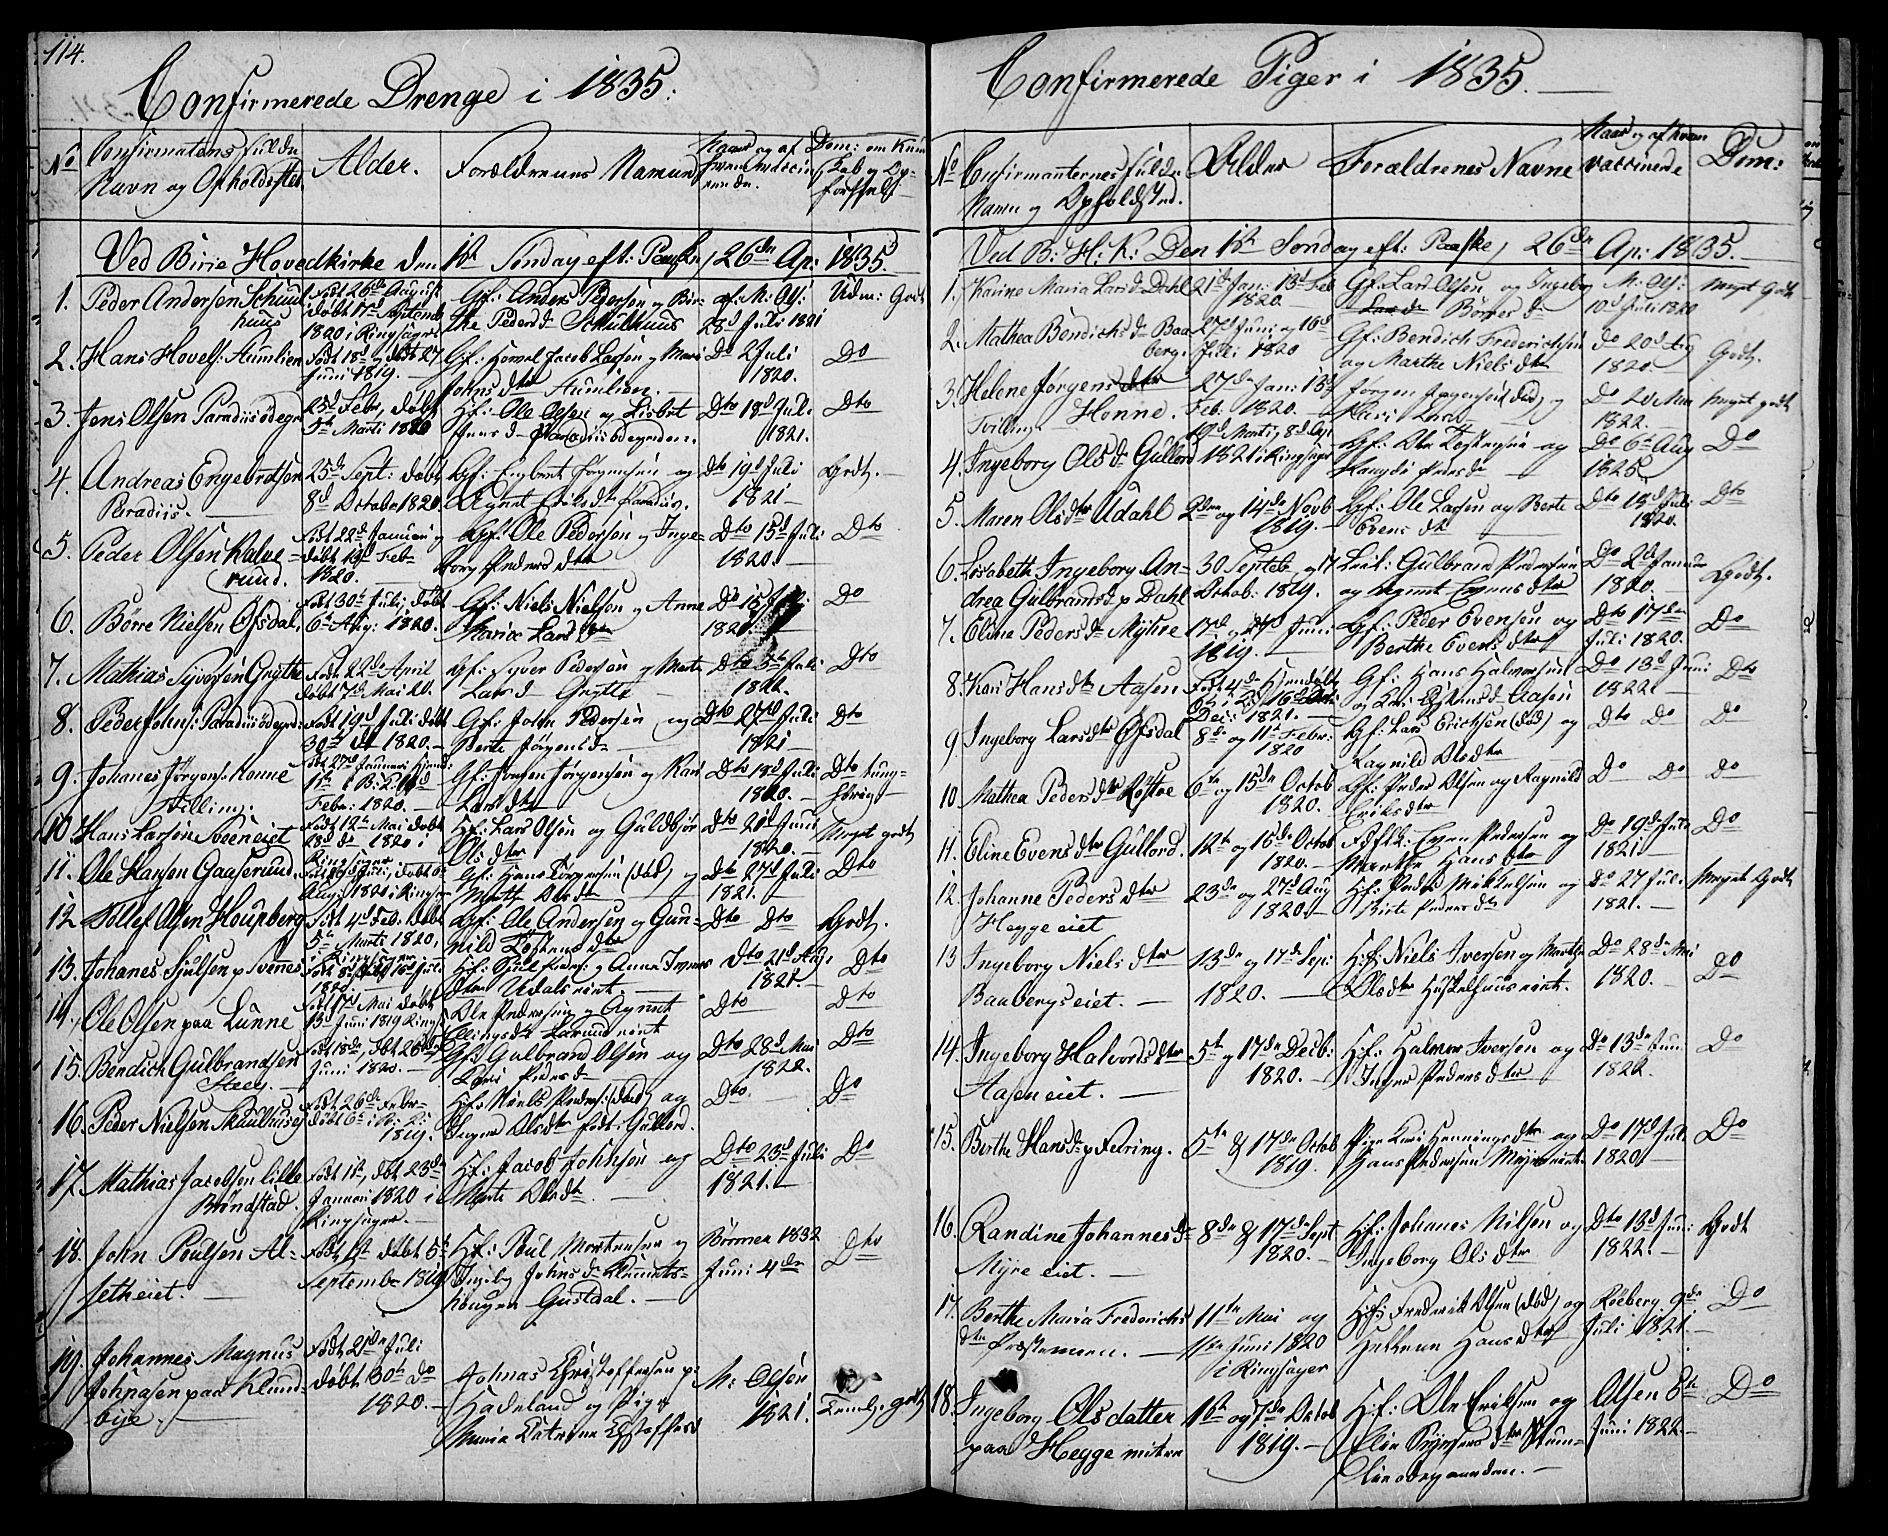 114.
Confirmerede Drenge i 1835.
No
Confirmatens fulde
Navn og Opholdssted
Alder.
Forældrenes Navne
Naar og af
hvem vaccin
erede.
Dom: om Kund
skab og Op-
førsel
Ved Birie Hovedkirke den 1st Søndag eft: Paaske, 26de Ap: 1835.
1. Peder Andersen Schuul
huus
født 26de August
døbt 17de Septemb
1820 i Ringsager
Gf: Anders Pedersen og Bir-
the Pedersd. Schulhuus
af: M: Ols:
28d Juli 1821
Udm: Godt
2. Hans Hovels: Aumlien
født 18d og døbt 27
Juni 1819.
Gf: Hovel Jacob Larsen og Mari
Johns dtr Aumlien.
Do 2 Juli
1820.
Do
3. Jens Olsen Paradiisødegn
23d Febr, døbt
5te Marti 1820
Hf: Ole Olsen og Lisbet
Jens d. Paradiisødegnden.
Dto 18d Juli
1821.
Dto
4. Andreas Engebretsen
Paradiis.
25de Sept: døbt
8d October 1820.
Gf: Engbret Jørgensen og
Agnet Eriks dtr Paradiis.
Dto 19d Juli
1821
Godt.
5. Peder Olsen Kalve-
rud.
født 22de Januari og
døbt 13d Feb-
1820.
Gf: Ole Pedersen og Inge-
borg Peders dtr
Dto 15d Juli
1820.
Dto
6. Børre Nielsen Øfsdal,
født 30te Juli, døbt
6te Aug: 1820.
Gf: Niels Nielsen og Anne
Maria Lars dtr
Do
Do
7. Mathias Syversen Grytte
født 22de April
døbt 7de Mai 20.
Gf: Syver Pedersen og Marte
Lars d. Grytte
Dto 5te Juli
1822.
Dto
8. Peder Johns: Paradiisødegn
født 19d Juli døbt
30te dto 1820.
Gf: John Pedersen og
Berte Jørgensd.
Dto 27d Juli
1821
Dto
9. Johanes Jørgens: Honne
Tvilling.
født 27d Januari
Febr: 1820.
Gf: Jørgen Jørgensen og Kari
Lars dtr
Dto 18d Juli
1820.
Dto tung-
hørig
10. Hans Larsen Sveen eiet
født 12te Mai døbt
28d do 1820 i
Ringsager
Hf: Lars Olsen og Guldbjør
Ols dtr
Dto 21d Juni
1820.
Meget godt
11. Ole Hansen Gaaserud
Aug: 1820 i Rings
Gf: Hans Jørgensen (død) og
Marte Ols dtr
Dto 27d Juli
1821.
Dto
12. Tollef Olsen Hougberg
født 4d Feb. døbt
5te Marti 1820,
i Ringsager
Gf: Ole Andersen og Gun-
nild Tostens dtr
Dto Dto
Godt.
13. Johanes Sjulsen p Svennes
1820
Hf: Sjul Peders: og Anna Iver
dtr Udals eiet
Dto 21d Aug
1821
Dto
14. Ole Olsen paa Lunne
født 17d Mai døbt
13d Juni 1819 Rings
Ole Pedersen og Agnet
Ellingsdtr eiet
Dto
Dto
15. Bendich Gulbrandsen
Steeg.
født 18de, døbt 26de
Juni 1820.
Gf: Gulbrand Olsen og
Kari Pedersd.
Dto 28d Mai
1822.
Dto
16. Peder Nielsen Skuulhuus
født 26de Febr
døbt 6te i R: K:
1819.
Hf: Niels Peders: (død) og
Inger Olsdtr født: Gullord.
Dto.
Do
17. Mathias Jacobsen lille
Brøndstad.
født 1st, døbt 23de
Januari 1820 i
Ringsager.
Hf: Jacob Johnsen og
Marte Olsdtr.
Dto 23d Juli
1821.
Do
18. John Poulsen Al-
seth eiet.
født 1st døbt 5t
September 1819
Hf: Poul Mortensen og
Ingeb Johns d. Klemets-
haugen Gusdal.
Børmen 1832
Juni 4de
Dto
19. Johannes Magnus
Johnasen paa Klund-
bye.
født 21de Juli
døbt 30te do
1820.
Johnas Christoffersen p:
Hadeland og Pige
Maria Catrine Christoffersd
M: Olsen
1821.
godt
Confirmerede Piger i 1835.
No
Confirmanternes fulde
Navn og Opholdssted.
Alder
Forældrenes Navne
Naar og af hvem
vaccinerede
Dom:
Ved B: H: K: Den 1st Søndag eft: Paaske, 26de Ap: 1835.
1. Karine Maria Larsd Dahl
21de Jan: 13d Feb
1820.
Gf: Lars Olsen og Ingeborg
Børres d.
M: Ols:
10d Juli 1820
Meget Godt
2. Mathea Bendichsd. Baa
berg.
27d Juni og 16d
Juli 1820
Gf: Bendich Frederichsen
og Marthe Niels dtr
do 20d Aug
1820
Godt,
3. Helene Jørgens dtr
Tvilling Honne.
27de Jan: 13d
Feb: 1820.
Jørgen Jørgensen (død) og
Kari Larsd
Do 20 Mai
1822.
Meget godt
4. Ingeborg Olsd. Gullord
19d Marti, 8d Apr
1821 i Ringsager
Gf: Ole Tostensen og
Peders d.
Do 6te Aug
1825
Do
5. Maren Olsdtr Udahl
2den og 14de Novb
1819.
Gf: Ole Larsen og Berte
Evens dtr
Dto 18d Juli
1820.
Dto
6. Lisabeth Ingeborg An-
drea Gulbrandsd. p Dahl
30 Septeb og 17
Octob: 1819.
Leil: Gulbrand Pedersen
og Agnet Evensdtr
Do 2d Januar
1820.
Godt.
7. Eline Pedersd. Myhre
Juni
1819.
Gf: Peder Evensen og
Berthe Evens dtr
Dto 17de
Juli 1820.
Do
8. Kari Hansdtr Aasen
Deci: 1821.
Gf: Hans Halvorsen
og Kari d. Aasen
Do 13d Juni
1822.
Dto
9. Ingeborg Larsdtr Øfsdal
8de og 11te Febr:
1820
Gf: Lars Erichsen (død) og
Ragnild Olsdtr
Dto Do
Do
10. Mathea Pedersdtr Røstøe
6te og 15de Octob
1820.
Gf: Peder Olsen og Ragnild
Eriksdtr
Do Do
Do
11. Eline Evensdtr Gullord.
12te og 15de Octob
1820.
Even Pedersen og
Marthe Hans dtr
Do 19de Juli
1821
Do
12. Johanne Pedersdtr
Hegge eiet
23de og 27d Aug
1820.
Hf: Peder Mikkelsen og
Birte Peders dtr
Do 27 Jul.
1821.
Meget Godt
13 Ingeborg Nielsdtr
Baabergs eiet.
13de og 17de Sep:
1820.
Hf: Niels Iversen og Marthe
Olsdtr eiet.
Do 28de Mai
1820.
Do
14. Ingeborg Halvordsdtr
Aasen eiet.
5te og 17de Decb:
1820.
Hf: Halvor Iversen og
Inger Peders dtr
Do 13de Juni
1822
Do
15. Berthe Hansd. p Felring.
5te & 17de Octob
1819.
Pige Kari Hennings dtr og
Hans Pedersen Myre eiet.
Do 17d Jul.
1820
Do
16. Randine Johannesd.
Myre eiet.
8de & 17de Sept
1820.
Hf: Johanes Nilsen og
Ingeborg Ols dtr
Dto 13d Jun:
1822.
Godt
17. Berthe Maria Frederichs
dtr Præstemoen.
11te Mai og
11te Juni 1820
i Ringsager
Hf: Frederik Olsen (død) og
Hans dtr
9de
Juli 1821.
Do
18. Ingeborg Olsdatter
paa Hegge mitre
1ste og 7de Octob
1819.
Hf: Ole Eriksen og
Eline dtr Aum-
lieødegaarden.
Olsen 8te
Juni 1822
Do